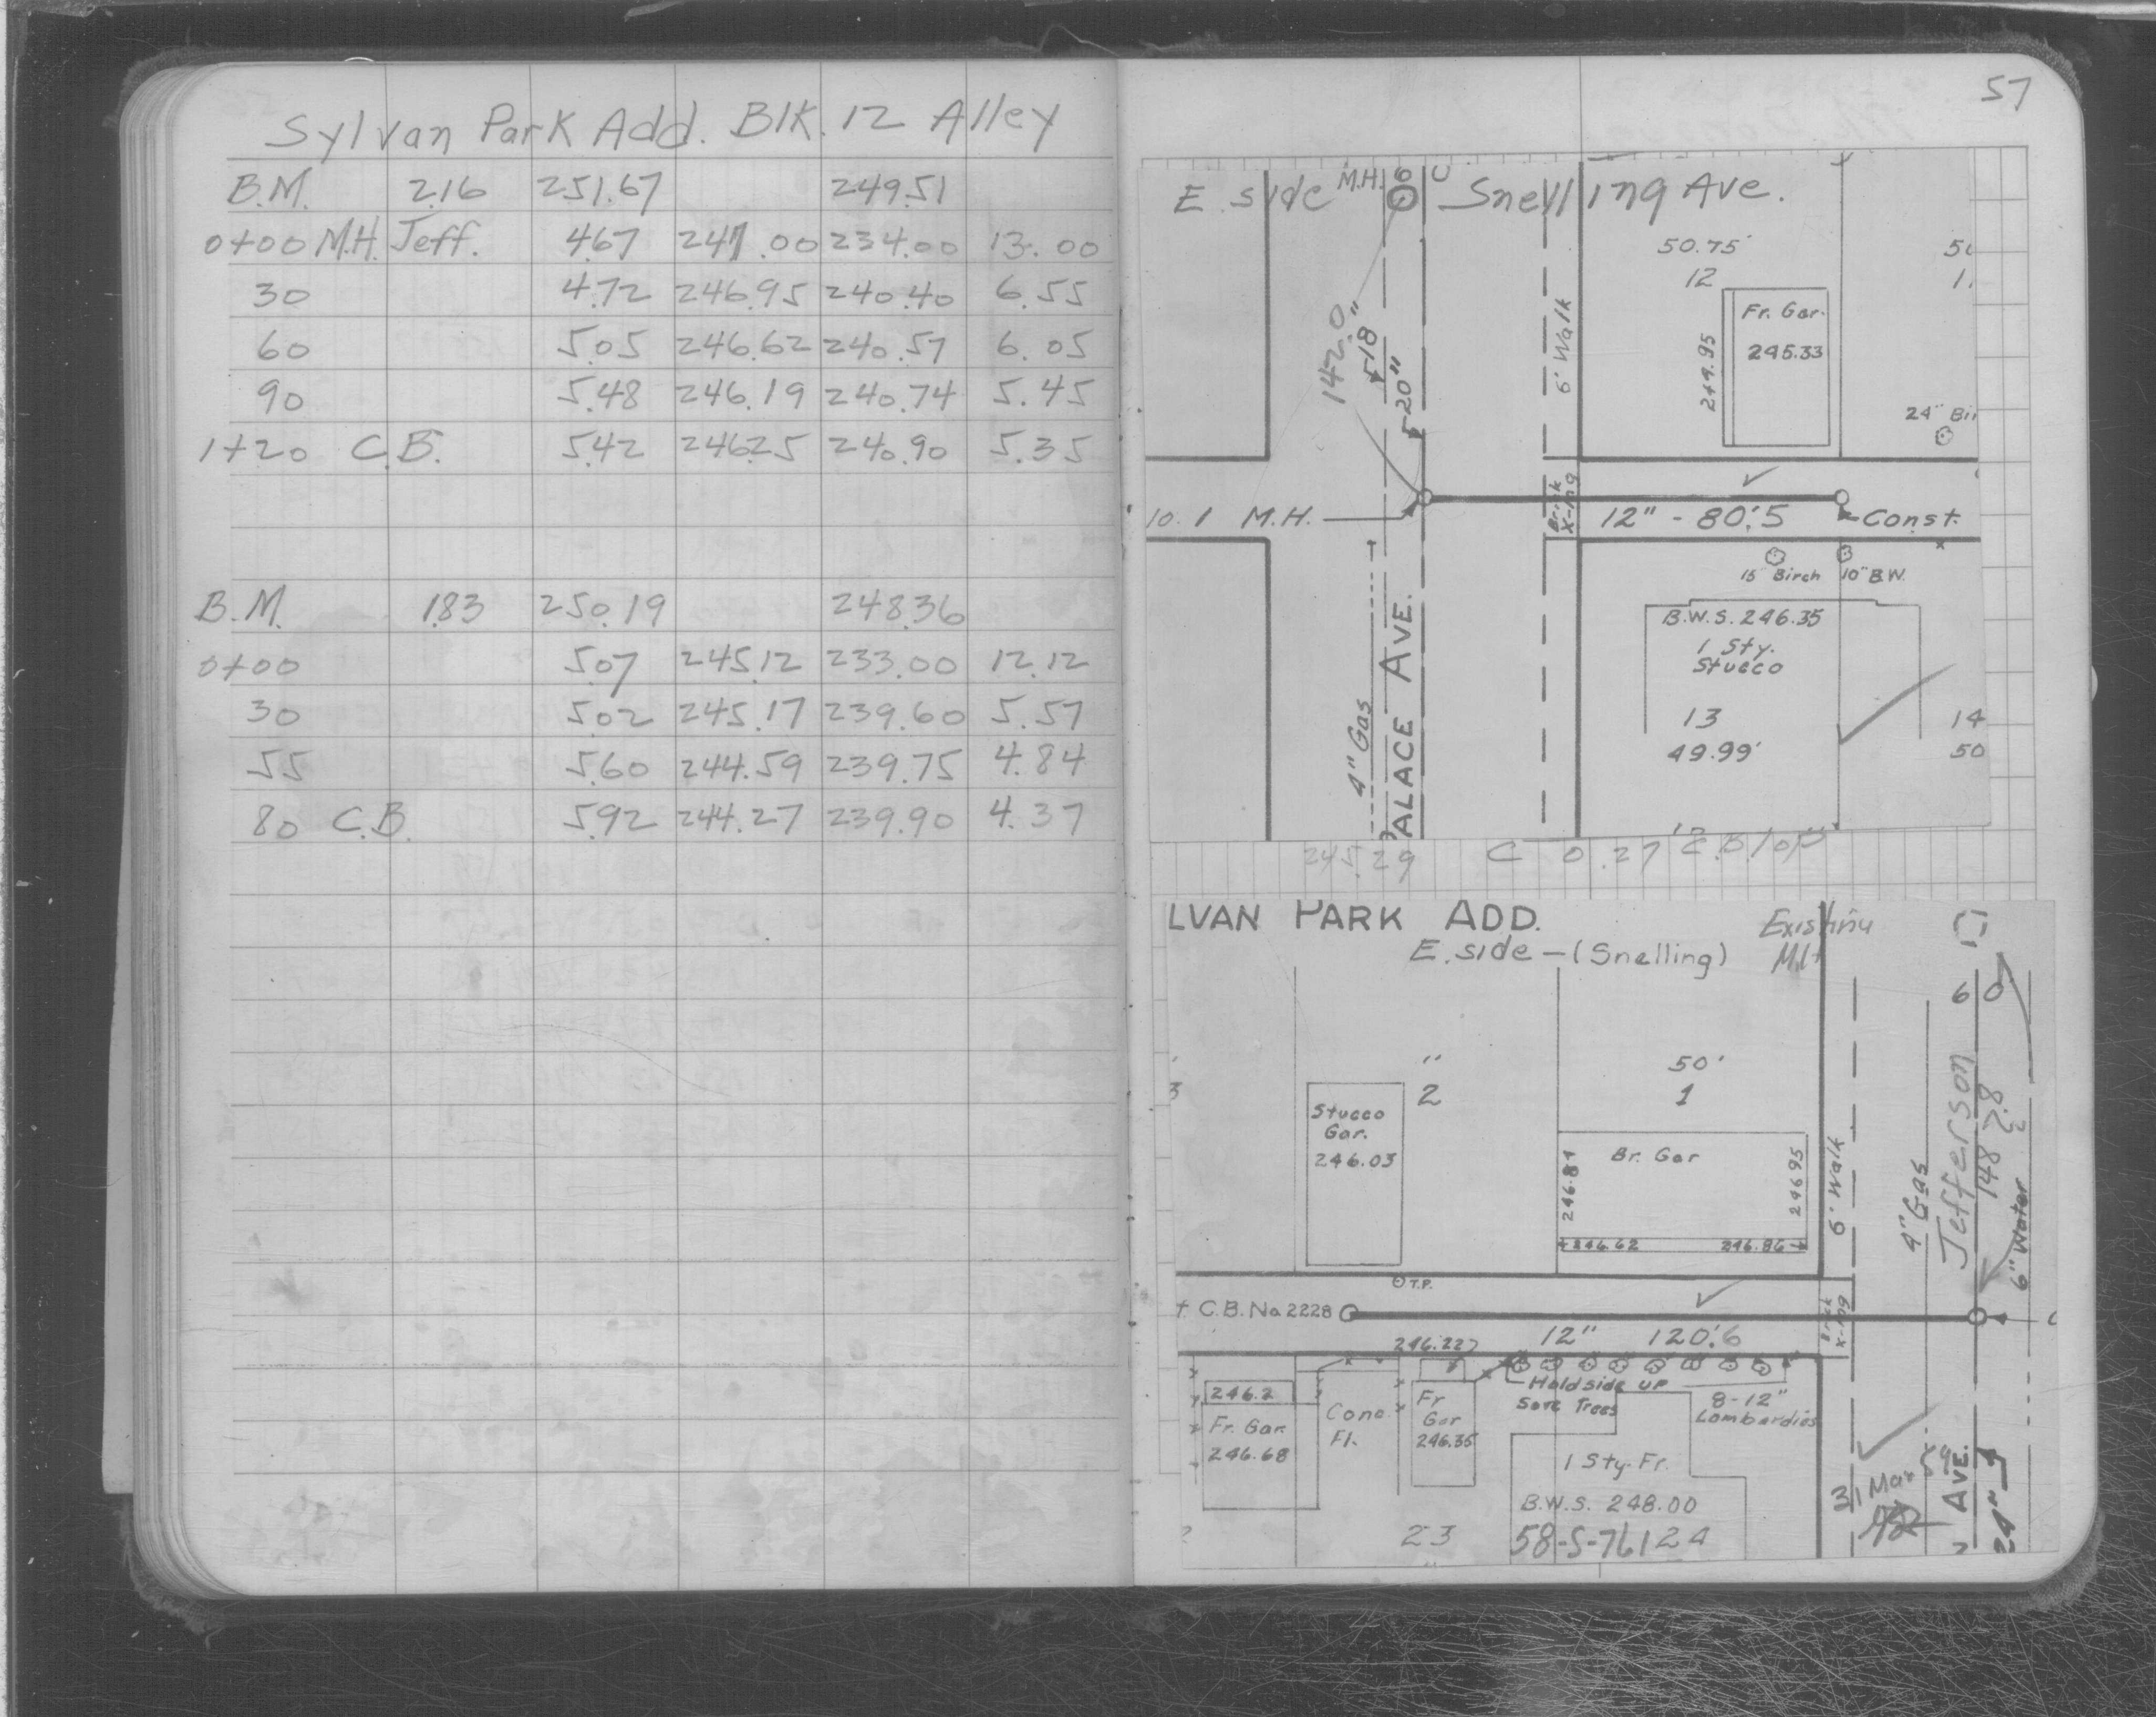 Sylvan Park Add. Blk. 12 Alley
B.M. 2.16 251.67 249.51
0+00 M.H. Jeff. 4.67 247.00 234.00 13.00
30 4.72 246.95 240.40 6.55
60 5.05 246.62 240.57 6.05
90 5.48 246.19 240.74 5.45
1+20 C.B. 5.42 246.25 240.90 5.35
B.M. 1.83 250.19 248.36
0+00 5.07 245.12 233.00 12.12
30 5.02 245.17 239.60 5.57
55 5.60 244.59 239.75 4.84
80 C.B. 5.92 244.27 239.90 4.37
57
E. side M.H. Snelling Ave.
50.75'
12
Fr. Gar.
245.33
244.95
6' Walk
142.0
18"
20"
24"
M.H.
Brick
X-ing
12" - 80'.5
Const.
15" Birch 10" B.W.
B.W.S. 246.35
1 Sty.
Stucco
13 14
49.99' 50
4" Gas
PALACE AVE.
245.29 C 0.27 C.B.
LVAN PARK ADD.
E. side - (Snelling)
Existing
50'
2 1
Stucco
Gar.
246.03
Br. Gar
246.81
246.95
246.62 246.86
6' Walk
4" Gas
Jefferson
148
6" Water
T.P.
C.B. No 2228
12" 120'.6
Brick
X-ing
246.22
Hold side up
Save Trees
8-12"
Lombardies
246.2
Fr. Gar.
246.68
Conc.
Fl.
Fr
Gar
246.35
1 Sty. Fr.
B.W.S. 248.00
23 58-S-761 24
31 Mar 59
AVE.
24"